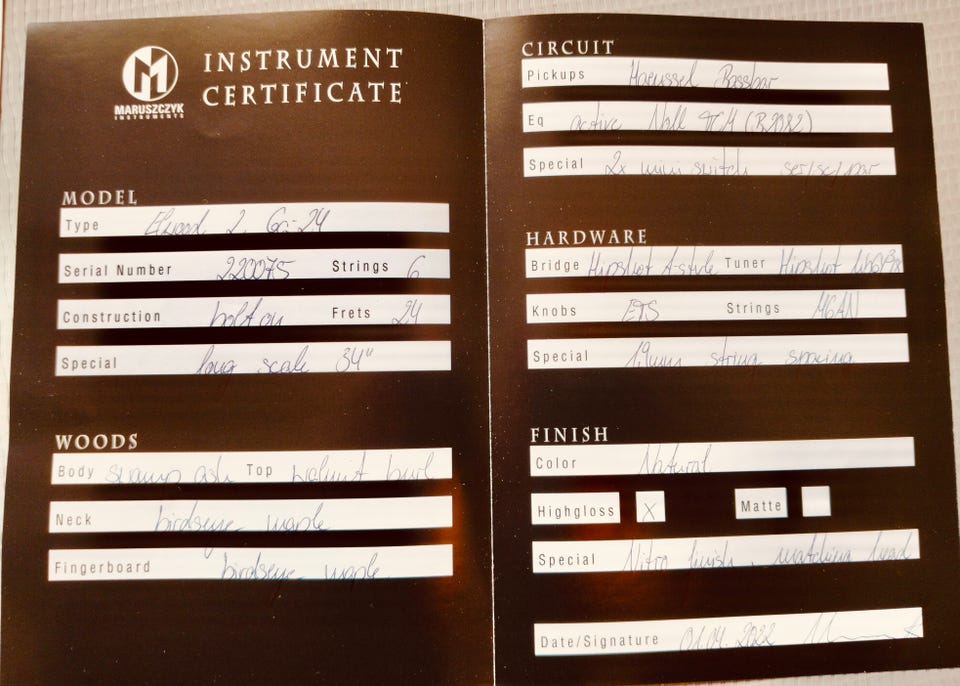 M
MARUSZCZYK
INSTRUMENTS
INSTRUMENT
CERTIFICATE
MODEL
Type Elwood L 6a-24
Serial Number 220075 Strings 6
Construction bolt on Frets 24
Special long scale 34"
WOODS
Body swamp ash Top walnut burl
Neck birdseye maple
Fingerboard birdseye maple
CIRCUIT
Pickups Haeussel Bassbar
Eq active Noll
Special 2x mini switch ser/sc/par
HARDWARE
Bridge Hipshot A-style Tuner Hipshot
Knobs ETS Strings MGAN
Special 19mm string spacing
FINISH
Color Natural
Highgloss X Matte
Special Nitro finish, matching head
Date/Signature 01.04.2022